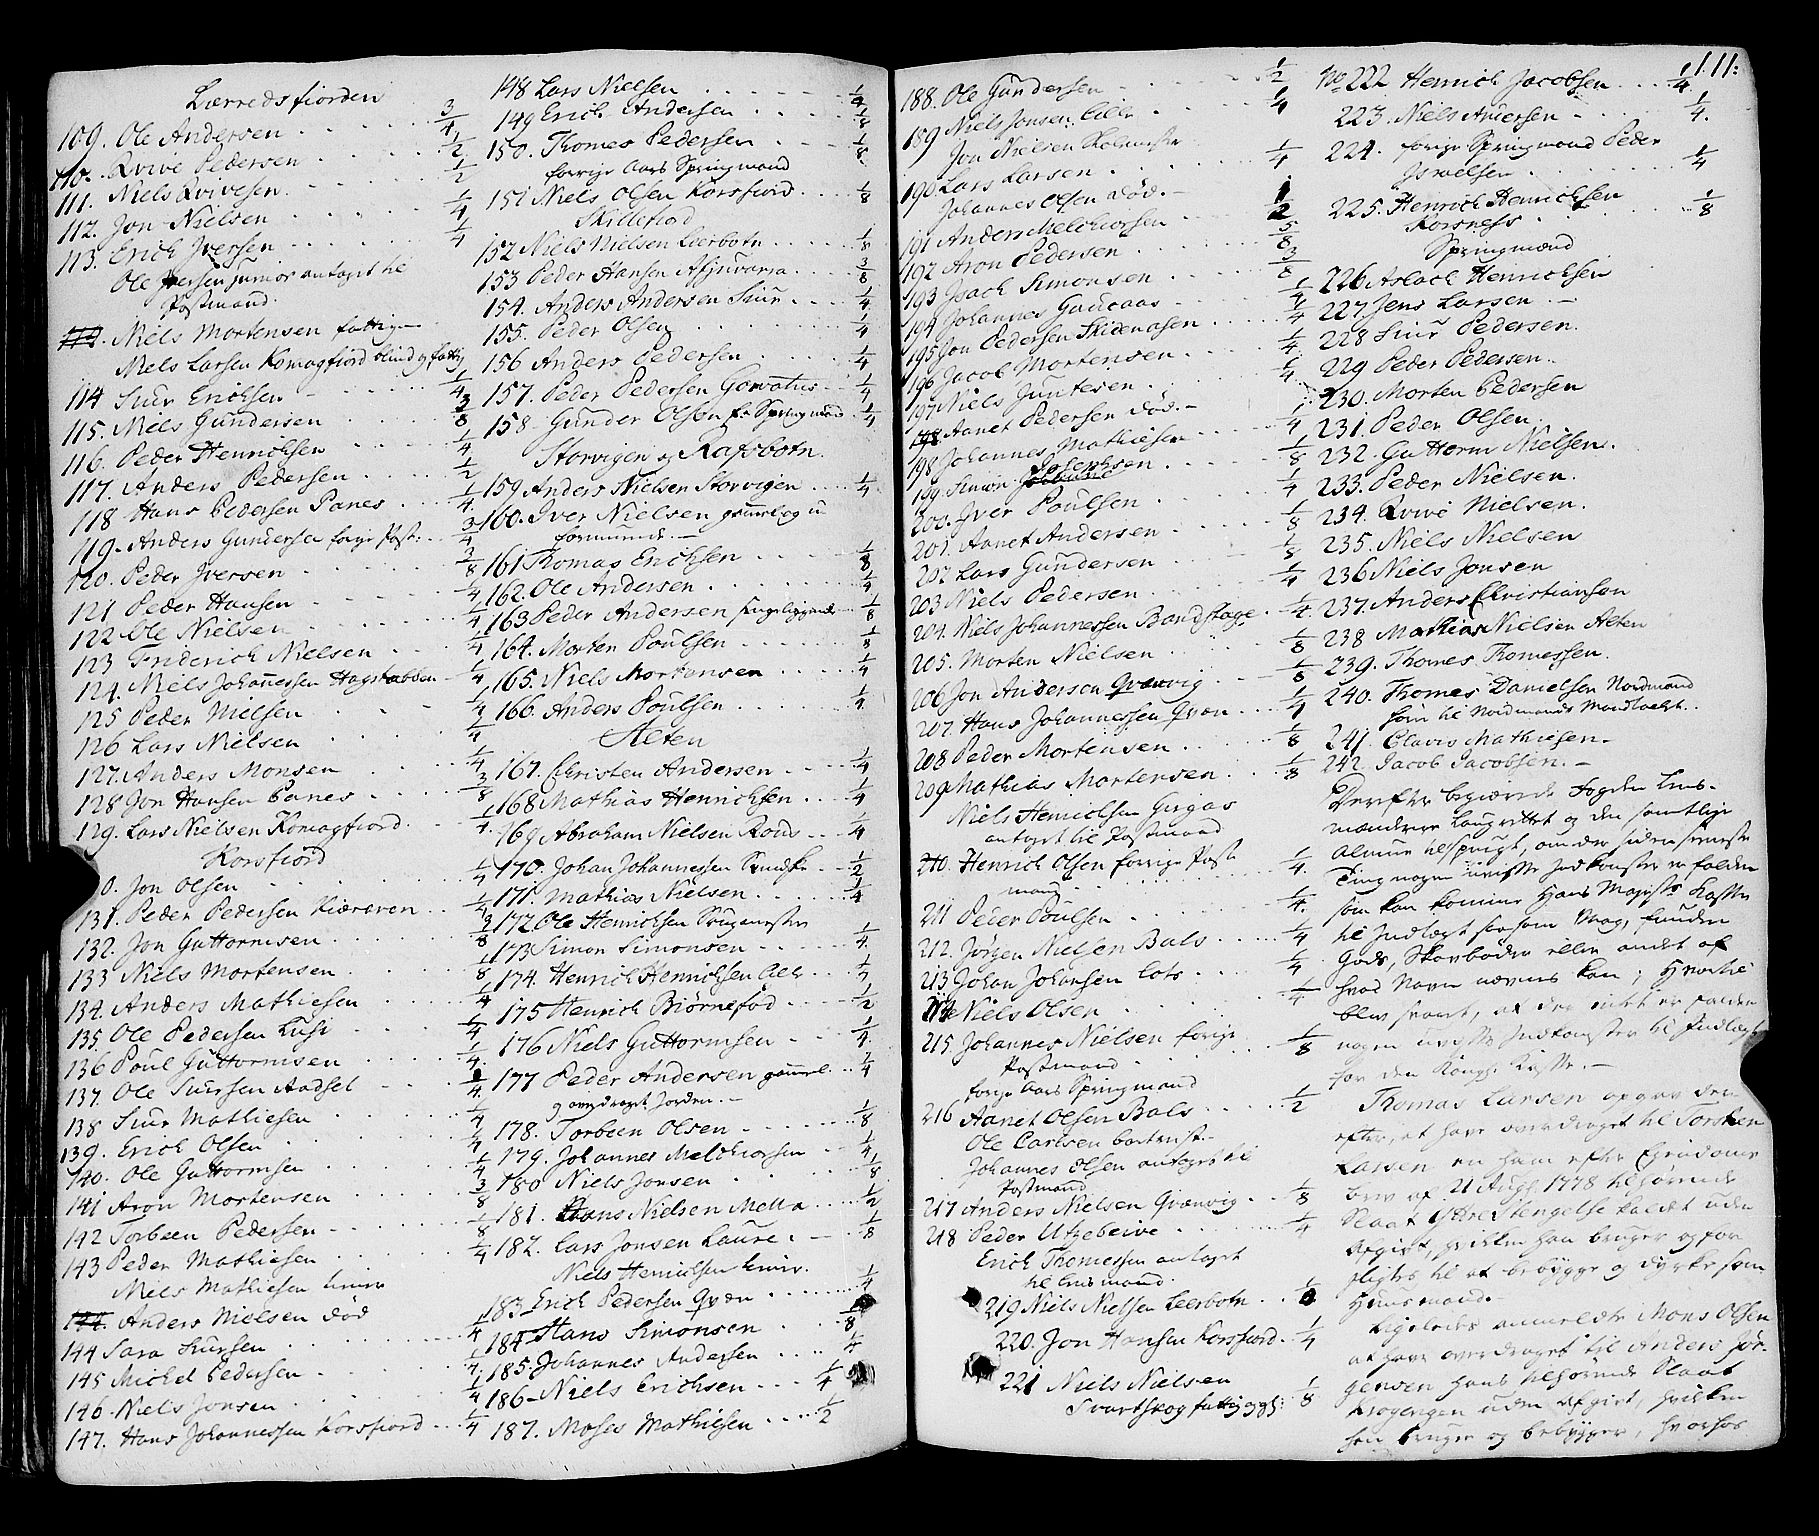 Lerredsfiorden
109. Ole Andersen 3/4
110. Qvive Pedersen 1/2
111. Niels Qvivesen 1/2
112. Jon Nielsen 1/4
113. Erich Iversen 1/4
Ole Iversen junior antaget til
Postmand.
Niels Mortensen fattig
Niels Larsen Komagfiord blind og fattig
114 Siur Erichsen 1/4
115. Niels Gundersen 3/8
116. Peder Henrichsen 1/4
117. Anders Pedersen 1/2
118 Hans Pedersen Panes 1/4
119. Anders Gundersen forrige Post: 3/4
120. Peder Iversen 3/8
121 Peder Hansen 1/4
122 Ole Nielsen 1/4
123 Friderich Nielsen 1/4
124. Niels Johannessen Hagstabben 1/4
125 Peder Nielsen 1/4
126 Lars Nielsen 1/4
127. Anders Monsen 1/4
128 Jon Hansen Panes 3/8
129. Lars Nielsen Komagfiord 1/4
Korsfiord
0. Jon Olsen 1/4
131. Peder Pedersen Kiæreren 1/4
132. Jon Guttormsen 3/8
133 Niels Mortensen 1/8
134. Anders Mathiesen 1/4
135. Ole Pedersen Lusi 1/4
136 Poul Guttormsen 1/4
137. Ole Siursen Aadsel 1/4
138 Siur Mathiesen 1/4
139. Erich Olsen 1/4
140. Ole Guttormsen 1/4
141 Aron Mortensen 3/8
142 Torbeen Pedersen 1/8
143 Peder Mathiesen 1/4
Niels Mathiesen
Anders Nielsen död
144 Sara Siursen 1/4
145 Michel Pedersen 1/4
146. Niels Jonsen 1/4
147. Hans Johannessen Korsfiord 1/4
148 Lars Nielsen 1/4
149 Erich Andersen 1/8
150. Thomes Pedersen 1/8
forrige Aars Springmand
151 Niels Olsen Korsfiord 1/8
Skillefiord
152 Niels Nielsen Leerbotn 1/8
153 Peder Hansen Afjuvarra 3/8
154. Anders Andersen Siur 1/4
155. Peder Olsen 1/4
156 Anders Pedersen 1/4
157. Peder Pedersen Gorvatus 1/4
158. Gunder Olsen f. Springmand 1/4
Storvigen og Rafsbotn.
159 Anders Nielsen Storvigen 1/4
160. Iver Nielsen gammel og u
formuende.
161 Thomas Erichsen 1/8
162. Ole Andersen 1/4
163 Peder Andersen sengeliggende 1/8
164. Morten Poulsen 1/8
165. Niels Mortensen 1/4
166. Anders Poulsen 1/4
Alten
167. Christen Andersen 1/4
168 Mathias Henrichsen 1/4
169 Abraham Nielsen Rous 1/4
170. Johan Johannessen 1/2
171. Mathias Nielsen 1/4
172 Ole Henrichsen
173 Simon Simonsen 1/4
174. Henrich Henrichsen 1/2
175 Henrich Biörnefod 1/2
176 Niels Guttormsen 1/4
177 Peder Andersen gammel 1/4
og overdraget Jorden.
178. Torbeen Olsen 1/8
179. Johannes Melchiorsen 1/4
180 Niels Jonsen 1/8
181. Hans Nielsen Mella 1/2
182. Lars Jonsen Laure 1/8
Niels Henrichsen
183. Erich Pedersen Qvæn 1/4
184 Hans Simonsen 1/8
185. Johannes Andersen 1/4
186 Niels Erichsen 1/4
187. Moses Mathiesen 1/2
188. Ole Gundersen 1/2
189 Niels Jonsen Lille 1/4
Jon Nielsen
190 Lars Larsen 1/4
Johannes Olsen död.
191 Anders Melchiorsen 1/2
192 Aron Pedersen 5/8
193 Isach Simonsen 3/8
194 Johannes Gaucaas 1/4
195 Jon Pedersen Skidenasen 1/4
196 Jacob Mortensen 1/4
197 Niels Juntesen 1/4
Aanet Pedersen död.
198 Johannes Mathiesen 1/4
199. Simon Josephsen 1/8
200. Iver Poulsen 1/4
201. Aanet Andersen 1/8
202 Lars Gundersen 1/8
203 Niels Pedersen 1/4
204. Niels Johannessen Bandstage 1/4
205. Morten Nielsen 1/8
206 Jon Andersen Qvænvig 1/8
207. Hans Johannessen Qvæn 1/4
208 Peder Mortensen 1/8
209 Mathias Mortensen 1/8
Niels Henrichsen Girgas
antaget til Postmand
210. Henrich Olsen forrige Post 1/4
mand
211 Peder Poulsen 1/4
212. Jörgen Nielsen Bals 1/4
213 Johan Johansen Lots 1/4
214 Niels Olsen 1/4
215. Johannes Nielsen forrige 1/8
Postmand
forrige Aars Springmand
216 Aanet Olsen Bals 1/2
Ole Carlsen bortreist.
Johannes Olsen antaget til
Postmand
217 Anders Nielsen Qvænvig 1/8
218 Peder Utzebeive 1/4
Erich Thomessen antaget
til Lensmand.
219 Niels Nielsen Leerbotn
220. Jon Hansen Korsfiord 1/4
221 Niels Nielsen
Svartskog fattig 1/8
111.
No 222 Henrich Jacobsen 1/4
223. Niels Andersen 1/4
224. forrige Springmand Peder
Israelsen 1/4
225. Henrich Henrichsen
Korsness 1/8
Springmænd
226 Aslach Henrichsen
227 Jens Larsen
228 Siur Pedersen.
229 Peder Pedersen.
230. Morten Pedersen
231. Peder Olsen
232. Guttorm Nielsen.
233. Peder Nielsen.
234. Qvive Nielsen.
235. Niels Nielsen
236 Niels Jonsen
237. Anders Christiansen
238 Mathias Nielsen Alten
239. Thomes Thomessen.
240. Thomes Danielsen Nordmand
före til Nordmands Mandtallet.
241. Clavis Mathiesen.
242. Jacob Jacobsen.
Derefter begierede Fogden Lens-
mændene Laugrettet og den samtlige
Almue tilspurgt, om der siden seeneste
Ting nogen uvisse Indkomster er falden
som kan komme Hans Majts Kasse
til Indtægt saasom Vrag, funden
Gods, Skovbøder eller andet af
hvad Navn nævnes kan; Hvortil
blev svaret, at der intet er falden
nogen uvisse Indkomster til Indtægt
for den Kongl. Kasse.
Thomas Larsen opgav der-
efter, at have overdraget til Torsten
Larsen en ham efter Eiendoms
brev af 21 Augs. 1778 tilhørende
Plads Ytre Stengelse kaldet uden
Afgivt, hvilken han bruger og for
pligtes til at bebygge og dyrke som
Huusmand.
Ligeledes anmeldte Mons Olsen
at have overdraget til Anders Jør-
gensen hans tilhørende Plads
Krogengen uden Afgivt, hvilken
han bruger og bebygger, hvorhos